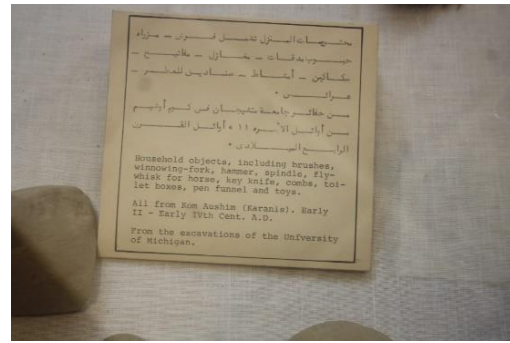 محتويات المنزل تشمل فرش - مزراه
حبوب مدقات - مغازل - مفاتيح -
سكاكين - أمشاط - صناديق للعطر -
عرائس •
من حفائر جامعة متشيجان فى كوم أوشيم
من أوائل الأسره ١١ • أوائل القرن
الرابع الميلادى •
Household objects, including brushes,
winnowing-fork, hammer, spindle, fly-
whisk for horse, key knife, combs, toi-
let boxes, pen funnel and toys.
All from Kom Aushim (Karanis). Early
II - Early IVth Cent. A.D.
From the excavations of the University
of Michigan.